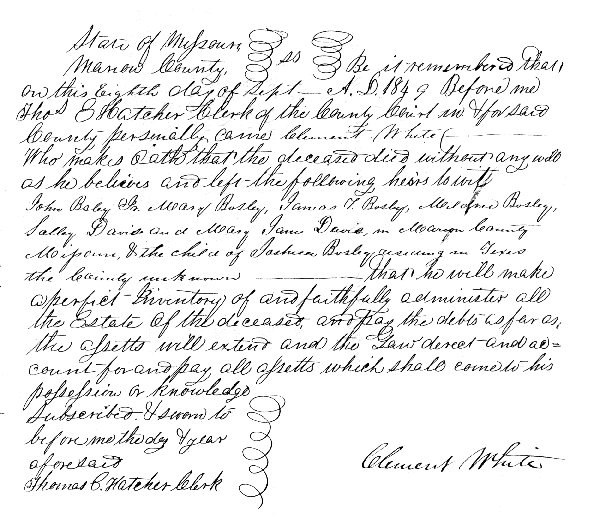 State of Missouri
Marion County, ss Be it remembered that
on this Eighth day of Sept - A. D. 1849 Before me
Thos E Hatcher Clerk of the County Court in & for said
County personally came Clement White
Who makes Oath that the deceased died without any will
as he believes and left the following heirs to wit
John Mary Bosley, James T. Bosley, Bosley,
Sally David and Mary Jane David, in Marion County
Missouri, & the child of Joshua Bosley residing in Texas
the County unknown that he will make
a perfict Inventory of and faithfully administer all
the Estate of the deceased, and pay the debts as far as
the assetts will extend and the Law derect and ac=
count for and pay all assetts which shall come to his
possession or knowledge
Subscribed & sworn to
before me the day & year
aforesaid
Clement White
Thomas C. Hatcher Clerk